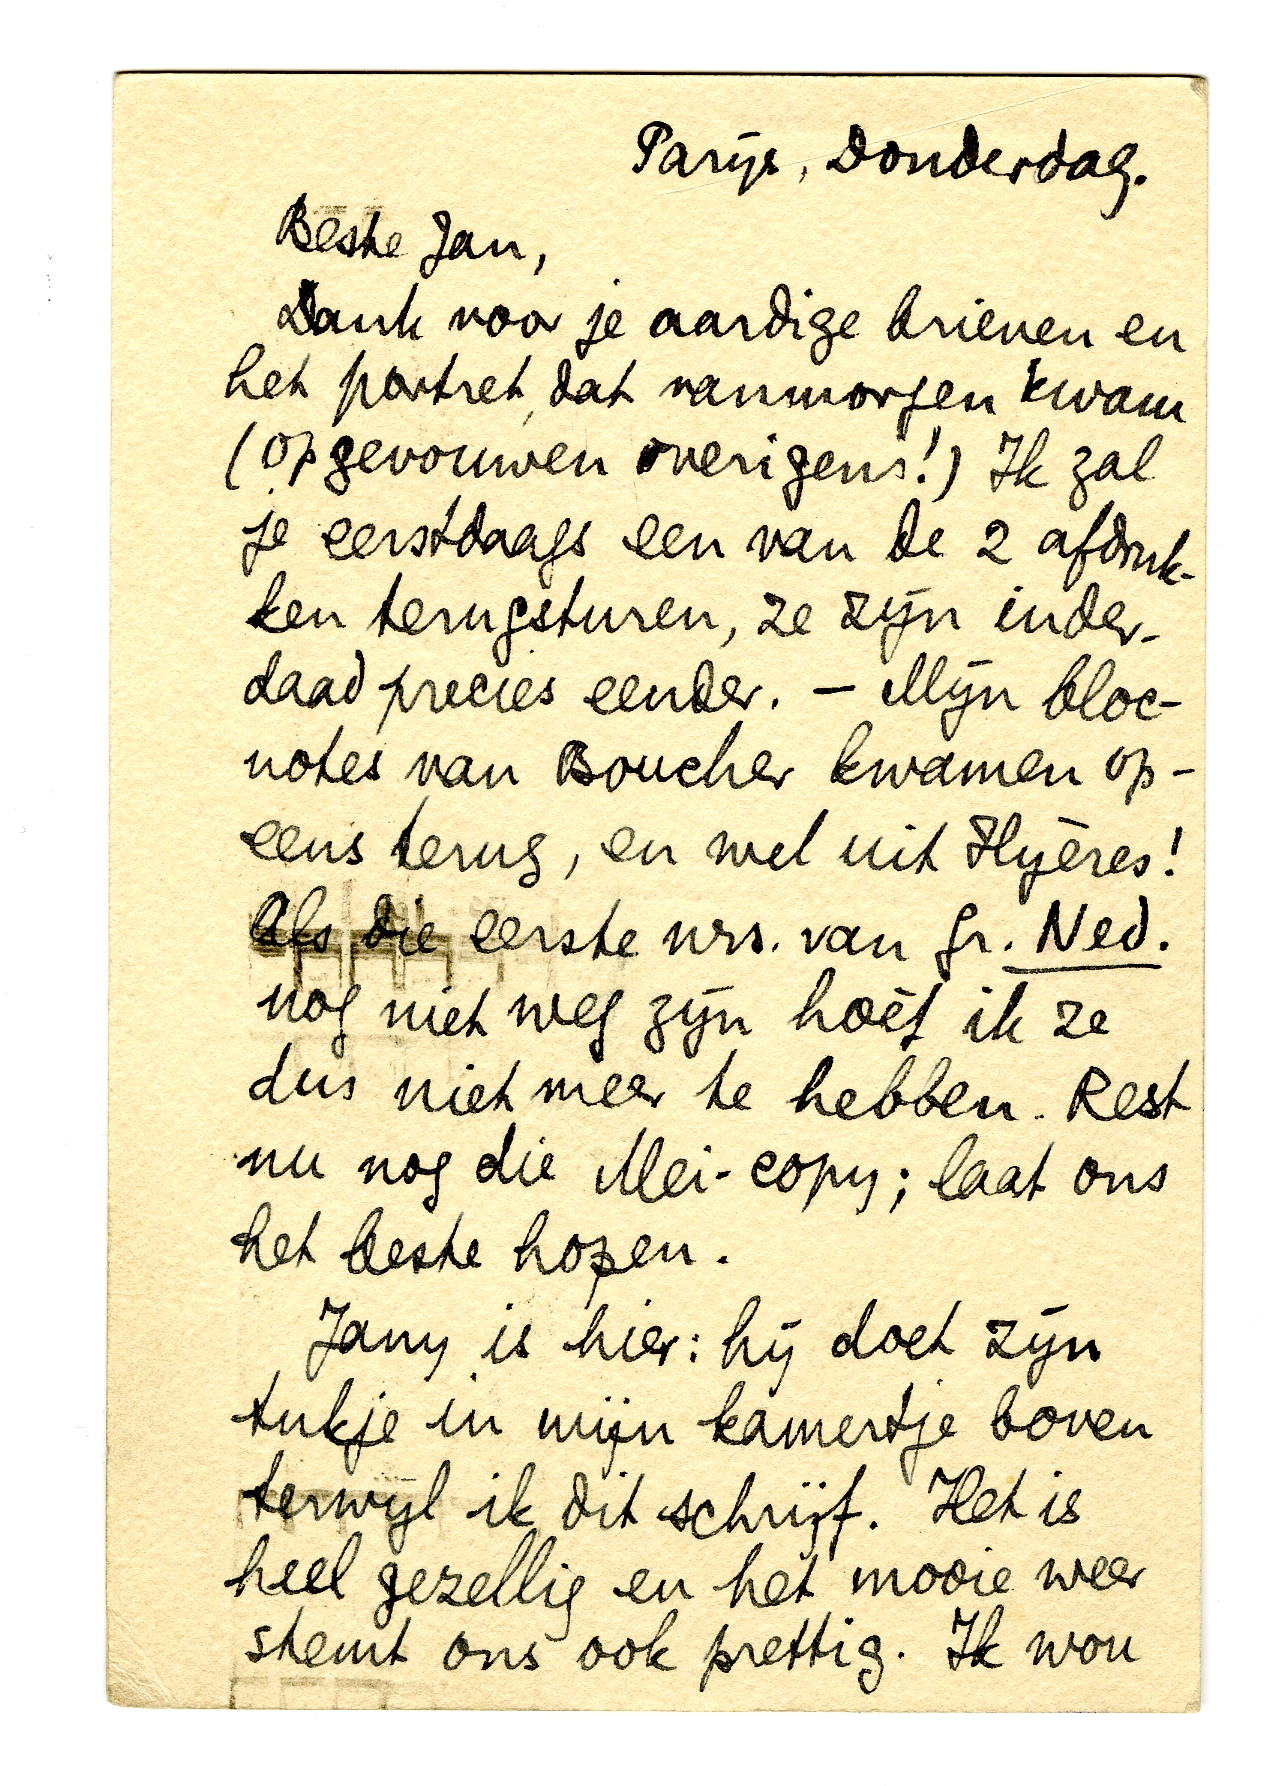 Parijs, Donderdag.
Beste Jan,
Dank voor je aardige brieven en
het portret, dat vanmorgen kwam
(opgevouwen overigens!) Ik zal
je eerstdaags een van de 2 afdruk-
ken terugsturen, ze zijn inder-
daad precies eender. — Mijn bloc-
notes van Boucher kwamen op-
eens terug, en wel uit Hyères!
Als die eerste nrs. van Gr. Ned.
nog niet weg zijn hoéf ik ze
dus niet meer te hebben. Rest
nu nog die Mei-copy; laat ons
het beste hopen.
Jany is hier: hij doet zijn
tukje in mijn kamertje boven
terwijl ik dit schrijf. Het is
heel gezellig en het mooie weer
stemt ons ook prettig. Ik wou